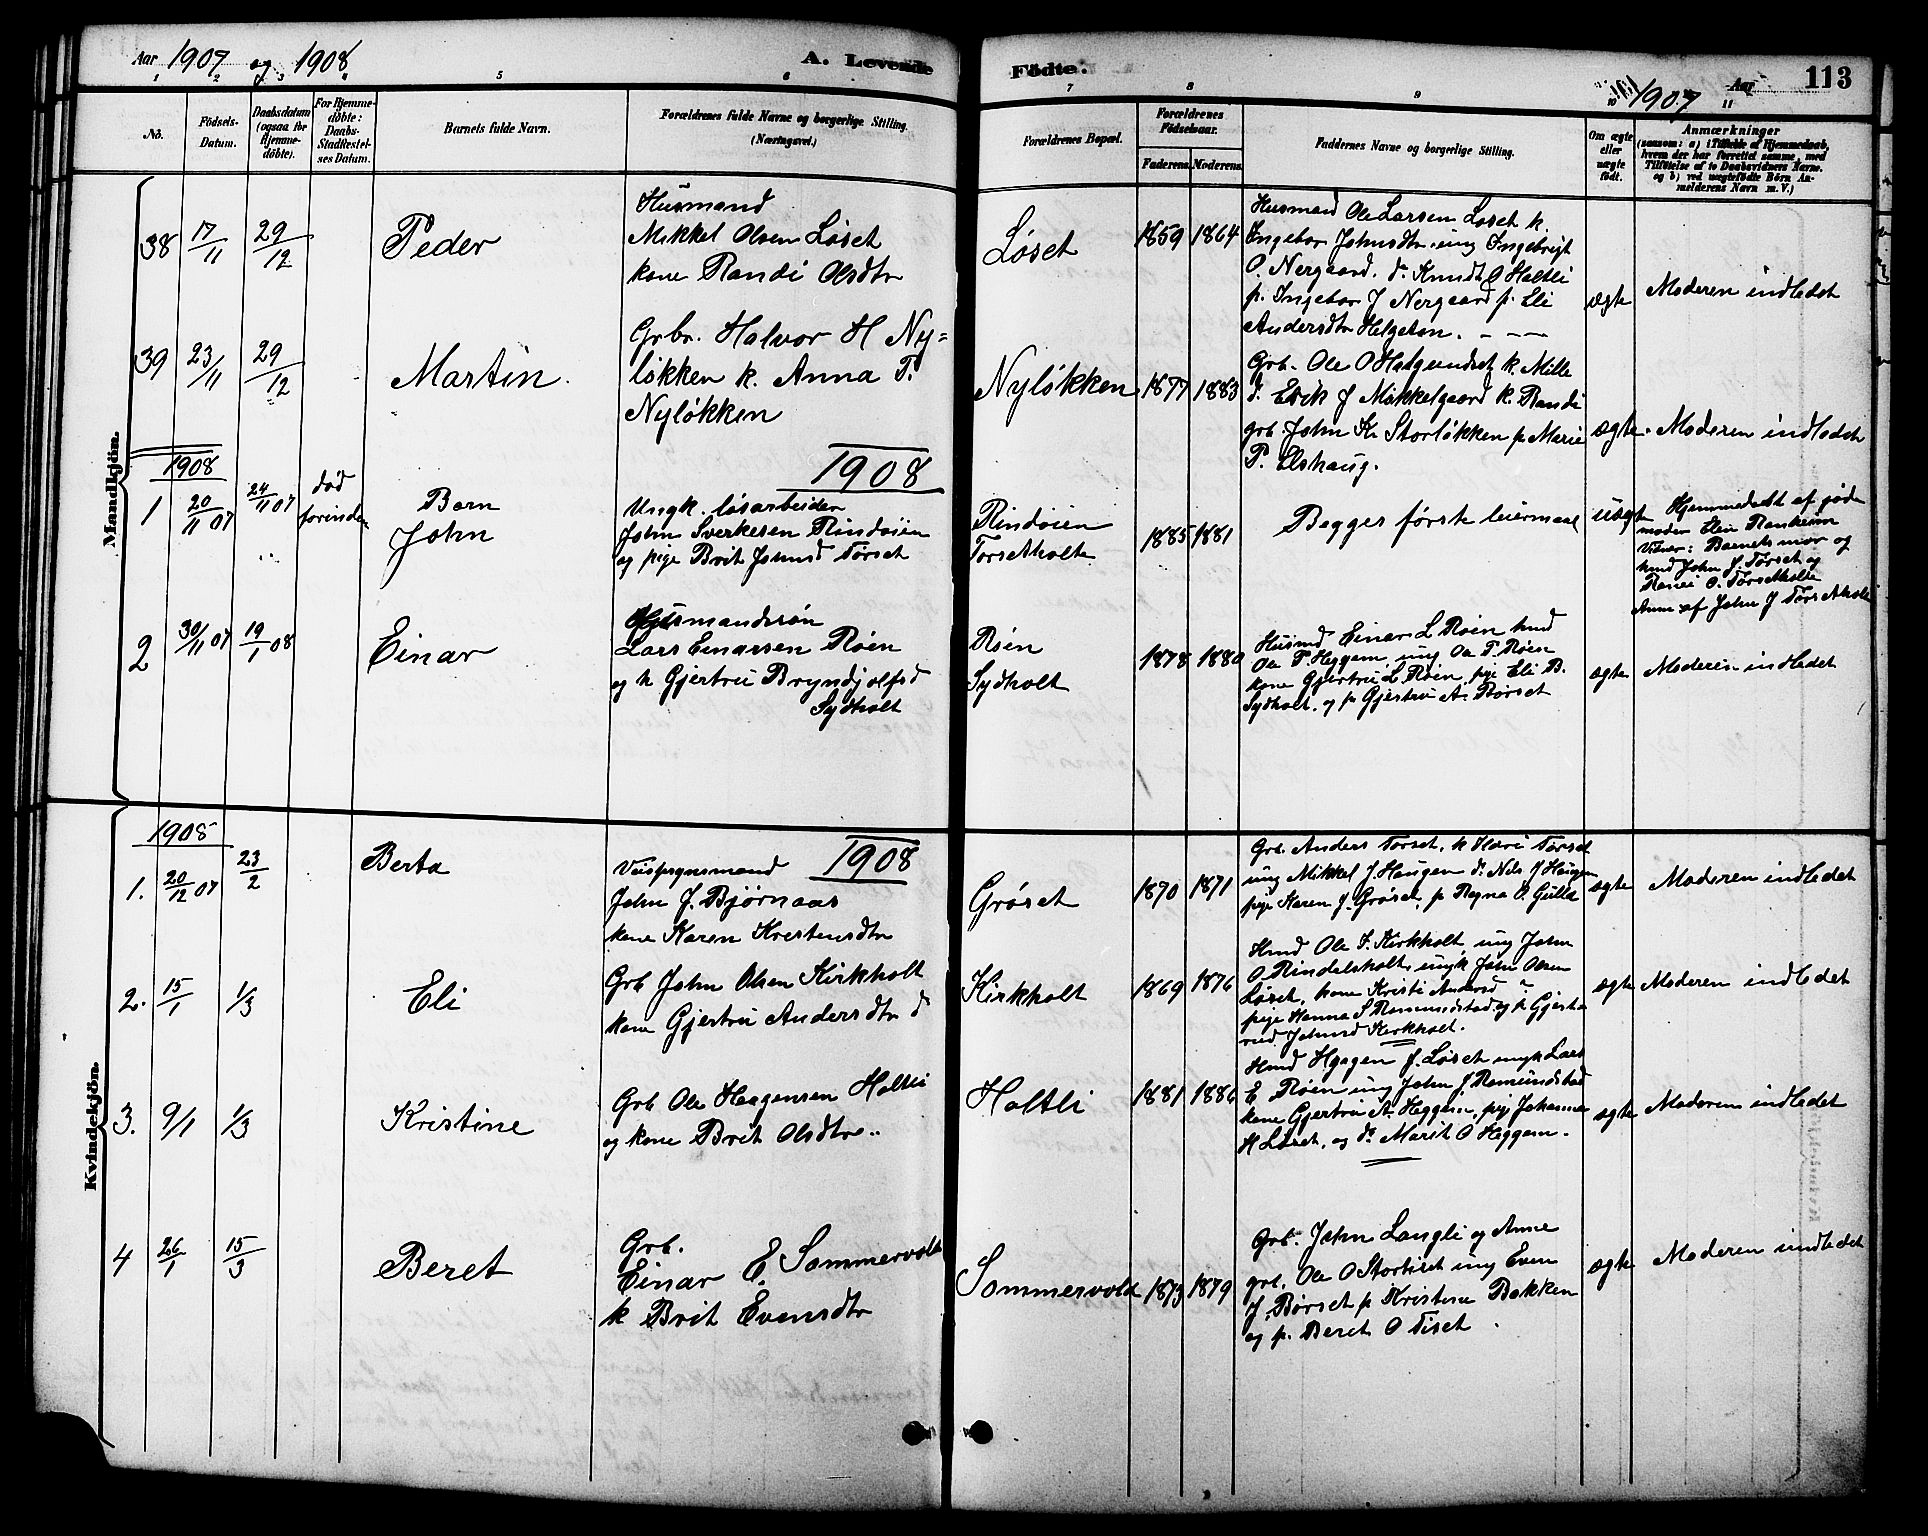 Aar 1907 og 1908
A. Levende
Födte.
1907
Aar
113
1 2 3 4 5 6 7 8 9 10 11
No.
Födsels-
Datum.
Daabsdatum
(ogsaa for
Hjemme-
döbte).
For Hjemme-
döbte:
Daabs-
Stadfæstel-
ses Datum.
Barnets fulde Navn.
Forældrenes fulde Navne og borgerlige Stilling.
(Næringsvei.)
Forældrenes Bopæl.
Forældrenes
Födselsaar.
Faderens. Moderens.
Faddernes Navne og borgerlige Stilling.
Om ægte
eller
uægte
födt.
Anmærkninger
(saasom: a) i Tilfælde af Hjemmedaab,
hvem der har forrettet samme, med
Tilföielse af to Daabsvidners Navne.
og b) ved uægtefödte Börn An-
melderens Navn m. V.)
Mandkjön.
38
17/11
29/12
Peder
Husmand
Mikkel Olsen Løset
kone Randi Olsdtr
Løset
1859 1864
Husmand Ole Larsen Løset k.
Ingebor Johnsdtr. ung Ingebrigt
O. Nergaard. do Knudt O Haltli
p. Ingebor J Nergaard p. Eli
Andersdtr Helgeton.
ægte
Moderen indledet
39
23/11
29/12
Martin.
Grbr. Halvor H Ny-
løkken k. Anna T.
Nyløkken
Nyløkken
1877 1883
Grb. Ole O Halgundset k. Mille
d. Erik J Mikkelgaard k. Randi
grb. John K Storløkken p Marie
P. Elshaug.
ægte.
Moderen indledet
1908
1908
1
20/11 07
24/11 07
død
forinden
Barn
John
Ungk. løsarbeider
John Sverkesen Rindøien
og pige Brit Johnsd Tørset
Rindøien
Torsetholte
1885 1881
Begges første leiermaal
uægte
Hjemmedøbt af jorde
moder Elen Ranheim
Vidner: Barnets mor og
husmd John J. Tørset og
O. Tørsetholte
Anm af John J Tørsetholt
2
30/11 07
19/1 08
Einar
Husmandssøn
Lars Einarsen Røen
og k Gjertru Bryndjolfsd
Sydholt
Røen
Sydholt
1878 1880
Husmd Einar L Røen husd
Ole T. Heggem, ung Ole T. Røen
kone Gjertru L Røen, pige Eli B.
Sydholt. og p Gjertru A. Børset
ægte
Moderen indledet
Kvindekjön.
1908
1908
1.
20/12 07
23/2
Berta
Veiopsynsmand
John J. Bjørnaas
kone Karen Kristensdtr
Grøset
1870 1871
Grb. Anders Torset, k Mari Torset
ung Mikkel J Haugen do Nils J Haugen
pige Karen J. Grøset, p Ragna O. Gulla
ægte
Moderen indledet
2.
15/1
1/3
Eli
Grb John Olsen Kirkholt
kone Gjertru Andersdtr d
Kirkholt
1869 1876
Husd Ole J. Kirkholt, ung John
O Rindelsholt, ungk John Olsen
Løset, kone Kristi Andersd
pige Hanna S Romundstad og p Gjert-
rud Johnsd Kirkholt.
ægte
Moderen indledet
3.
9/1
1/3
Kristine
Grb Ole Haagensen Holtli
og kone Brit Olsdtr..
Haltli
1881 1886
Husd Hågen J. Løset ungk Lars
E Røen ung John J Romundstad
kone Gjertru A. Heggem, pige Johanna
H Løset, og do Marit O Heggem.
ægte
Moderen indledet
4
26/1
15/3
Beret
Grb.
Einar E. Sommervold
k Brit Evensdtr
Sommervold
1873 1879
Grb. John Langli og Anne
grb. Ole O Storliset ung Even
J. Børset p Kristine Bakken
og p. Beret O Tiset.
ægte
Moderen indledet